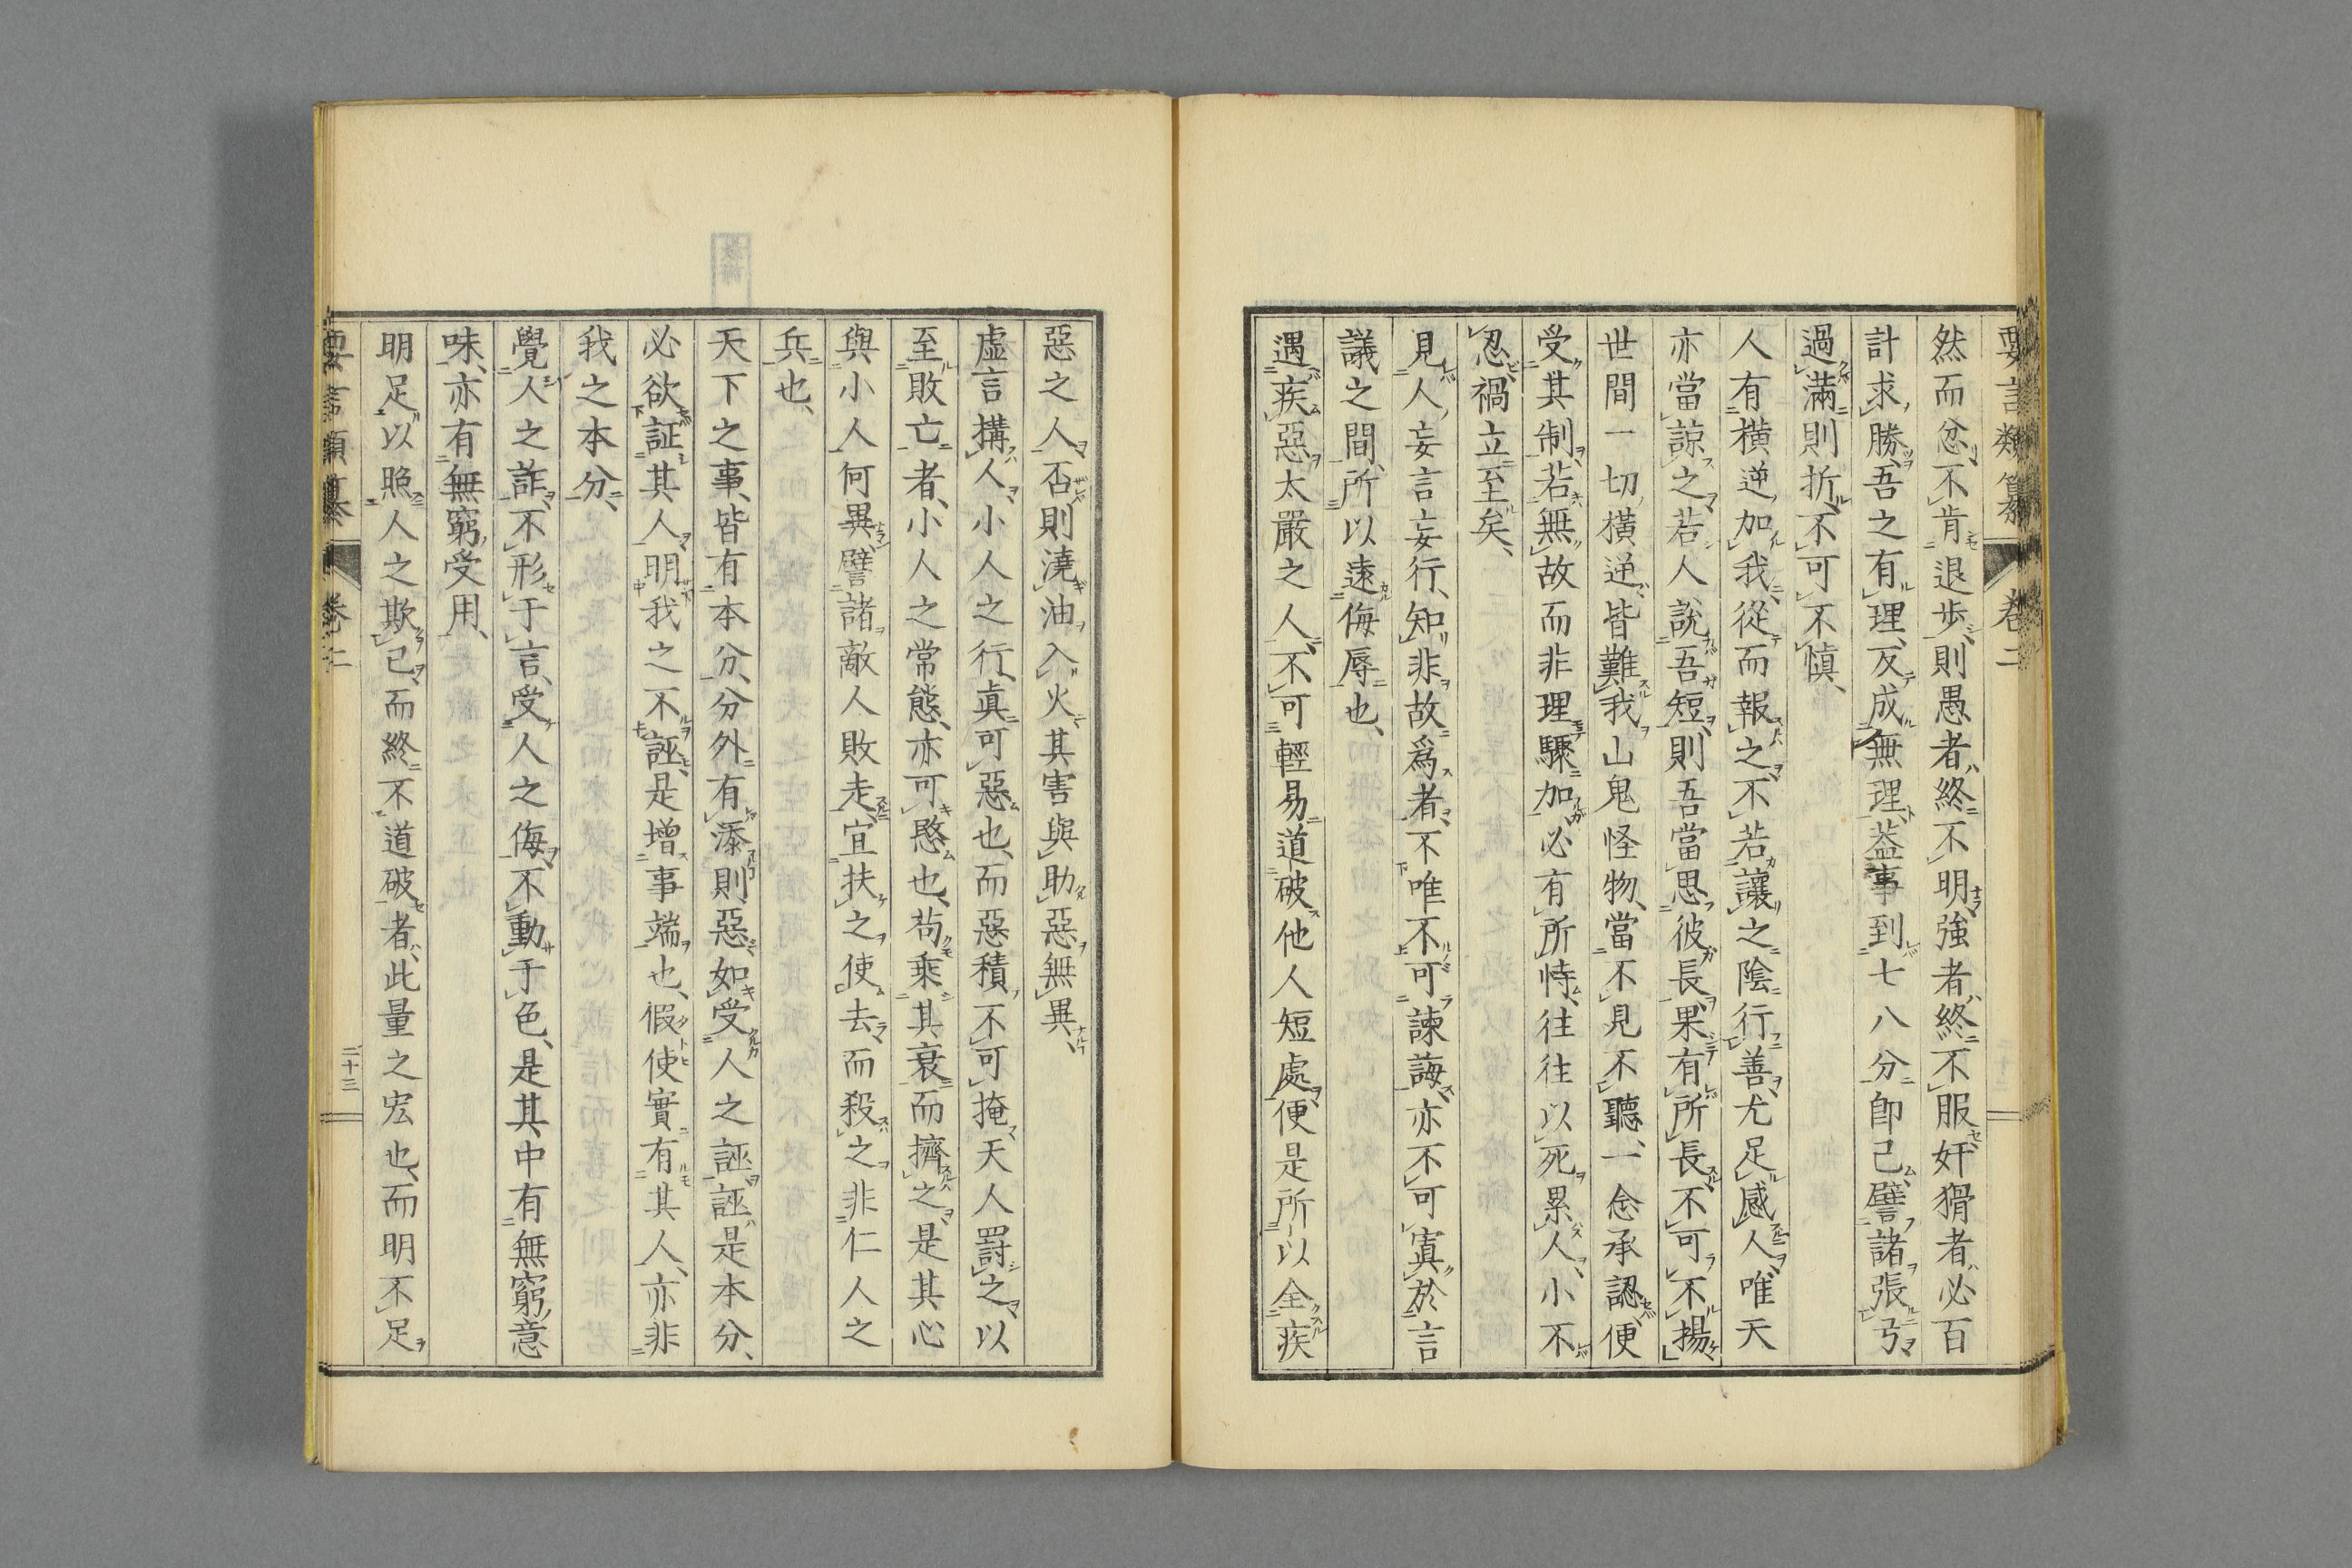 要言類纂 卷二
然而忿不肯退歩則愚者終不明強者終不服奸猾者必百
計求勝吾之有理反成無理葢事到七八分卽已譬諸張弓
過滿則折不可不愼
人有橫逆加我從而報之不若讓之陰行善尤足感人唯天
亦當諒之若人說吾短則吾當思彼長果有所長不可不揚
世間一切橫逆皆難我山鬼怪物當不見不聽一念承認便
受其制若無故而非理驟加必有所恃往往以死累人小不
忍禍立至矣
見人妄言妄行知非故爲者不唯不可諫誨亦不可寘於言
議之間所以遠侮辱也
遇疾惡太嚴之人不可輕易道破他人短處便是所以全疾
惡之人否則澆油入火其害與助惡無異
虛言搆人小人之行眞可惡也而惡積不可掩天人罸之以
至敗亡者小人之常態亦可愍也苟乘其衰而擠之是其心
與小人何異譬諸敵人敗走宜扶之使去而殺之非仁人之
兵也
天下之事皆有本分分外有添則惡如受人之誣誣是本分
必欲証其人明我之不誣是增事端也假使實有其人亦非
我之本分
覺人之詐不形于言受人之侮不動于色是其中有無窮意
味亦有無窮受用
明足以照人之欺己而終不道破者此量之宏也而明不足
要言類纂 卷二 二十三